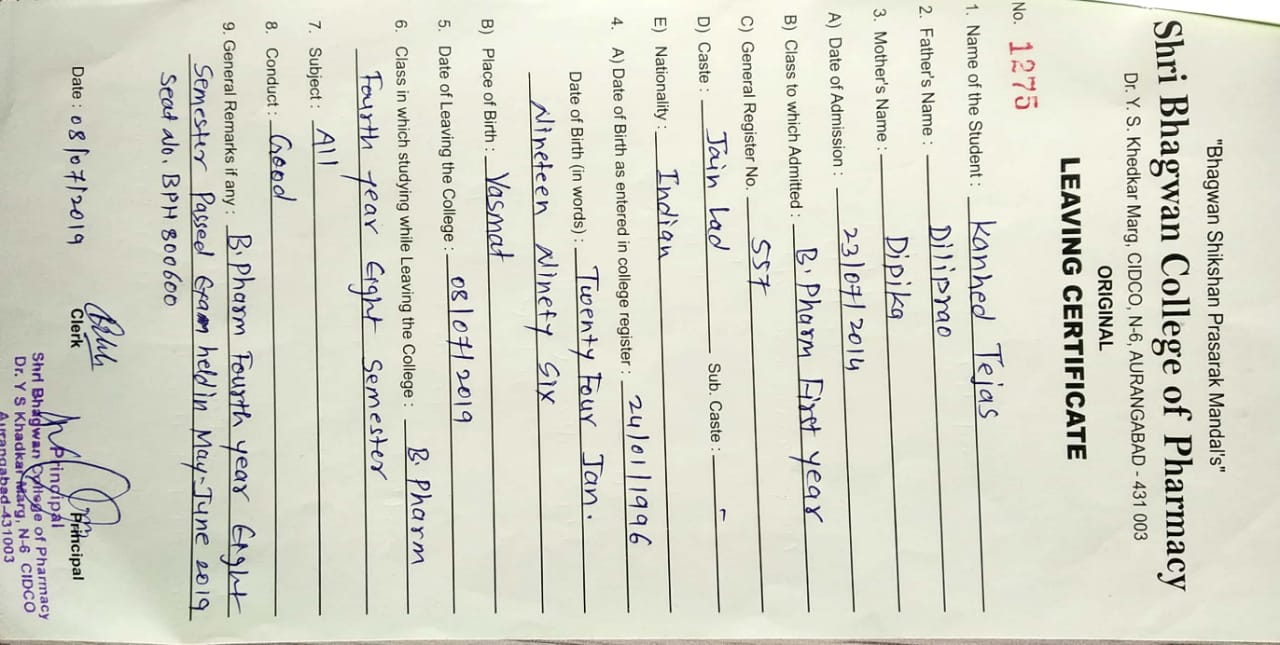 "Bhagwan Shikshan Prasarak Mandal's"
Shri Bhagwan College of Pharmacy
Dr. Y. S. Khedkar Marg, CIDCO, N-6, AURANGABAD - 431 003
ORIGINAL
LEAVING CERTIFICATE
No. 1275
1. Name of the Student : Kanhed Tejas
2. Father's Name : Diliprao
3. Mother's Name : Dipika
A) Date of Admission : 23/07/2014
B) Class to which Admitted : B. Pharm First year
C) General Register No. 557
D) Caste : Jain Lad Sub. Caste : -
E) Nationality : Indian
4. A) Date of Birth as entered in college register : 24/01/1996
Date of Birth (in words) : Twenty Four Jan.
Nineteen Ninety Six
B) Place of Birth : Vasmat
5. Date of Leaving the College : 08/07/2019
6. Class in which studying while Leaving the College : B. Pharm
Fourth year Eight Semester
7. Subject : All
8. Conduct : Good
9. General Remarks if any : B. Pharm Fourth year Eight
Semester Passed Exam held in May-June 2019
Seat No. BPH 800600
Date : 08/07/2019 Clerk Principal
Principal
Shri Bhagwan College of Pharmacy
Dr. Y S Khadkar Marg, N-6 CIDCO
Aurangabad-431003